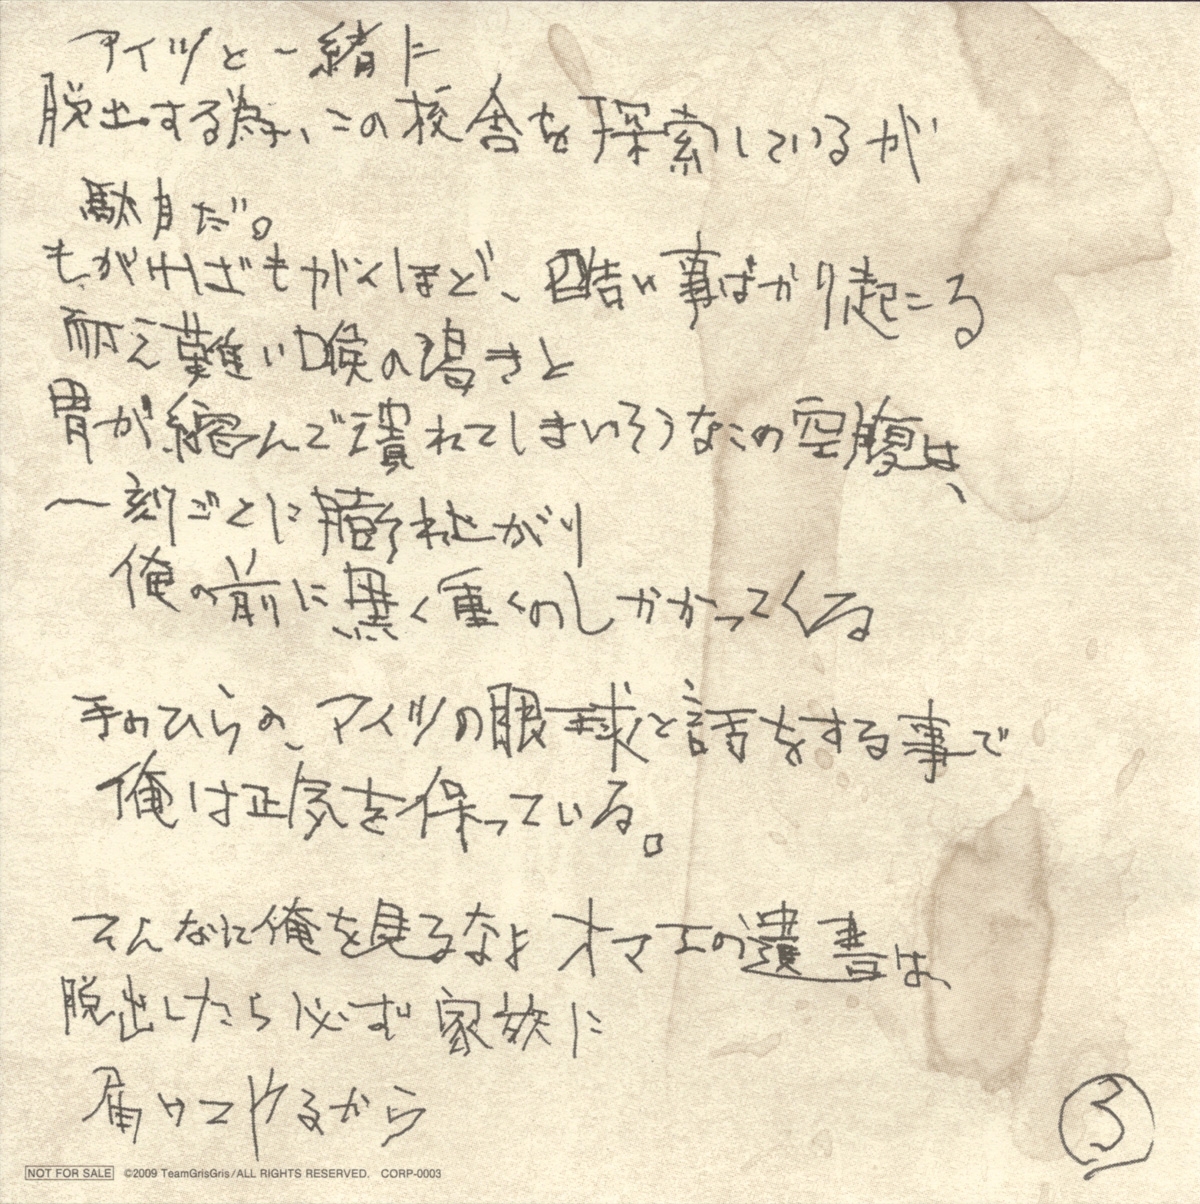 アイツと一緒に
脱出する為、この校舎を探索しているが
駄目だ。
もがけばもがくほど、酷い事ばかり起こる
耐え難い喉の渇きと
胃が縮んで潰れてしまいそうなこの空腹は、
一刻ごとに膨れ上がり
俺の前に黒く重くのしかかってくる
手のひらの、アイツの眼球と話をする事で
俺は正気を保っている。
そんなに俺を見るなよ オマエの遺書は、
脱出したら必ず家族に
届けてやるから
③
NOT FOR SALE ©2009 TeamGrisGris/ALL RIGHTS RESERVED. CORP-0003